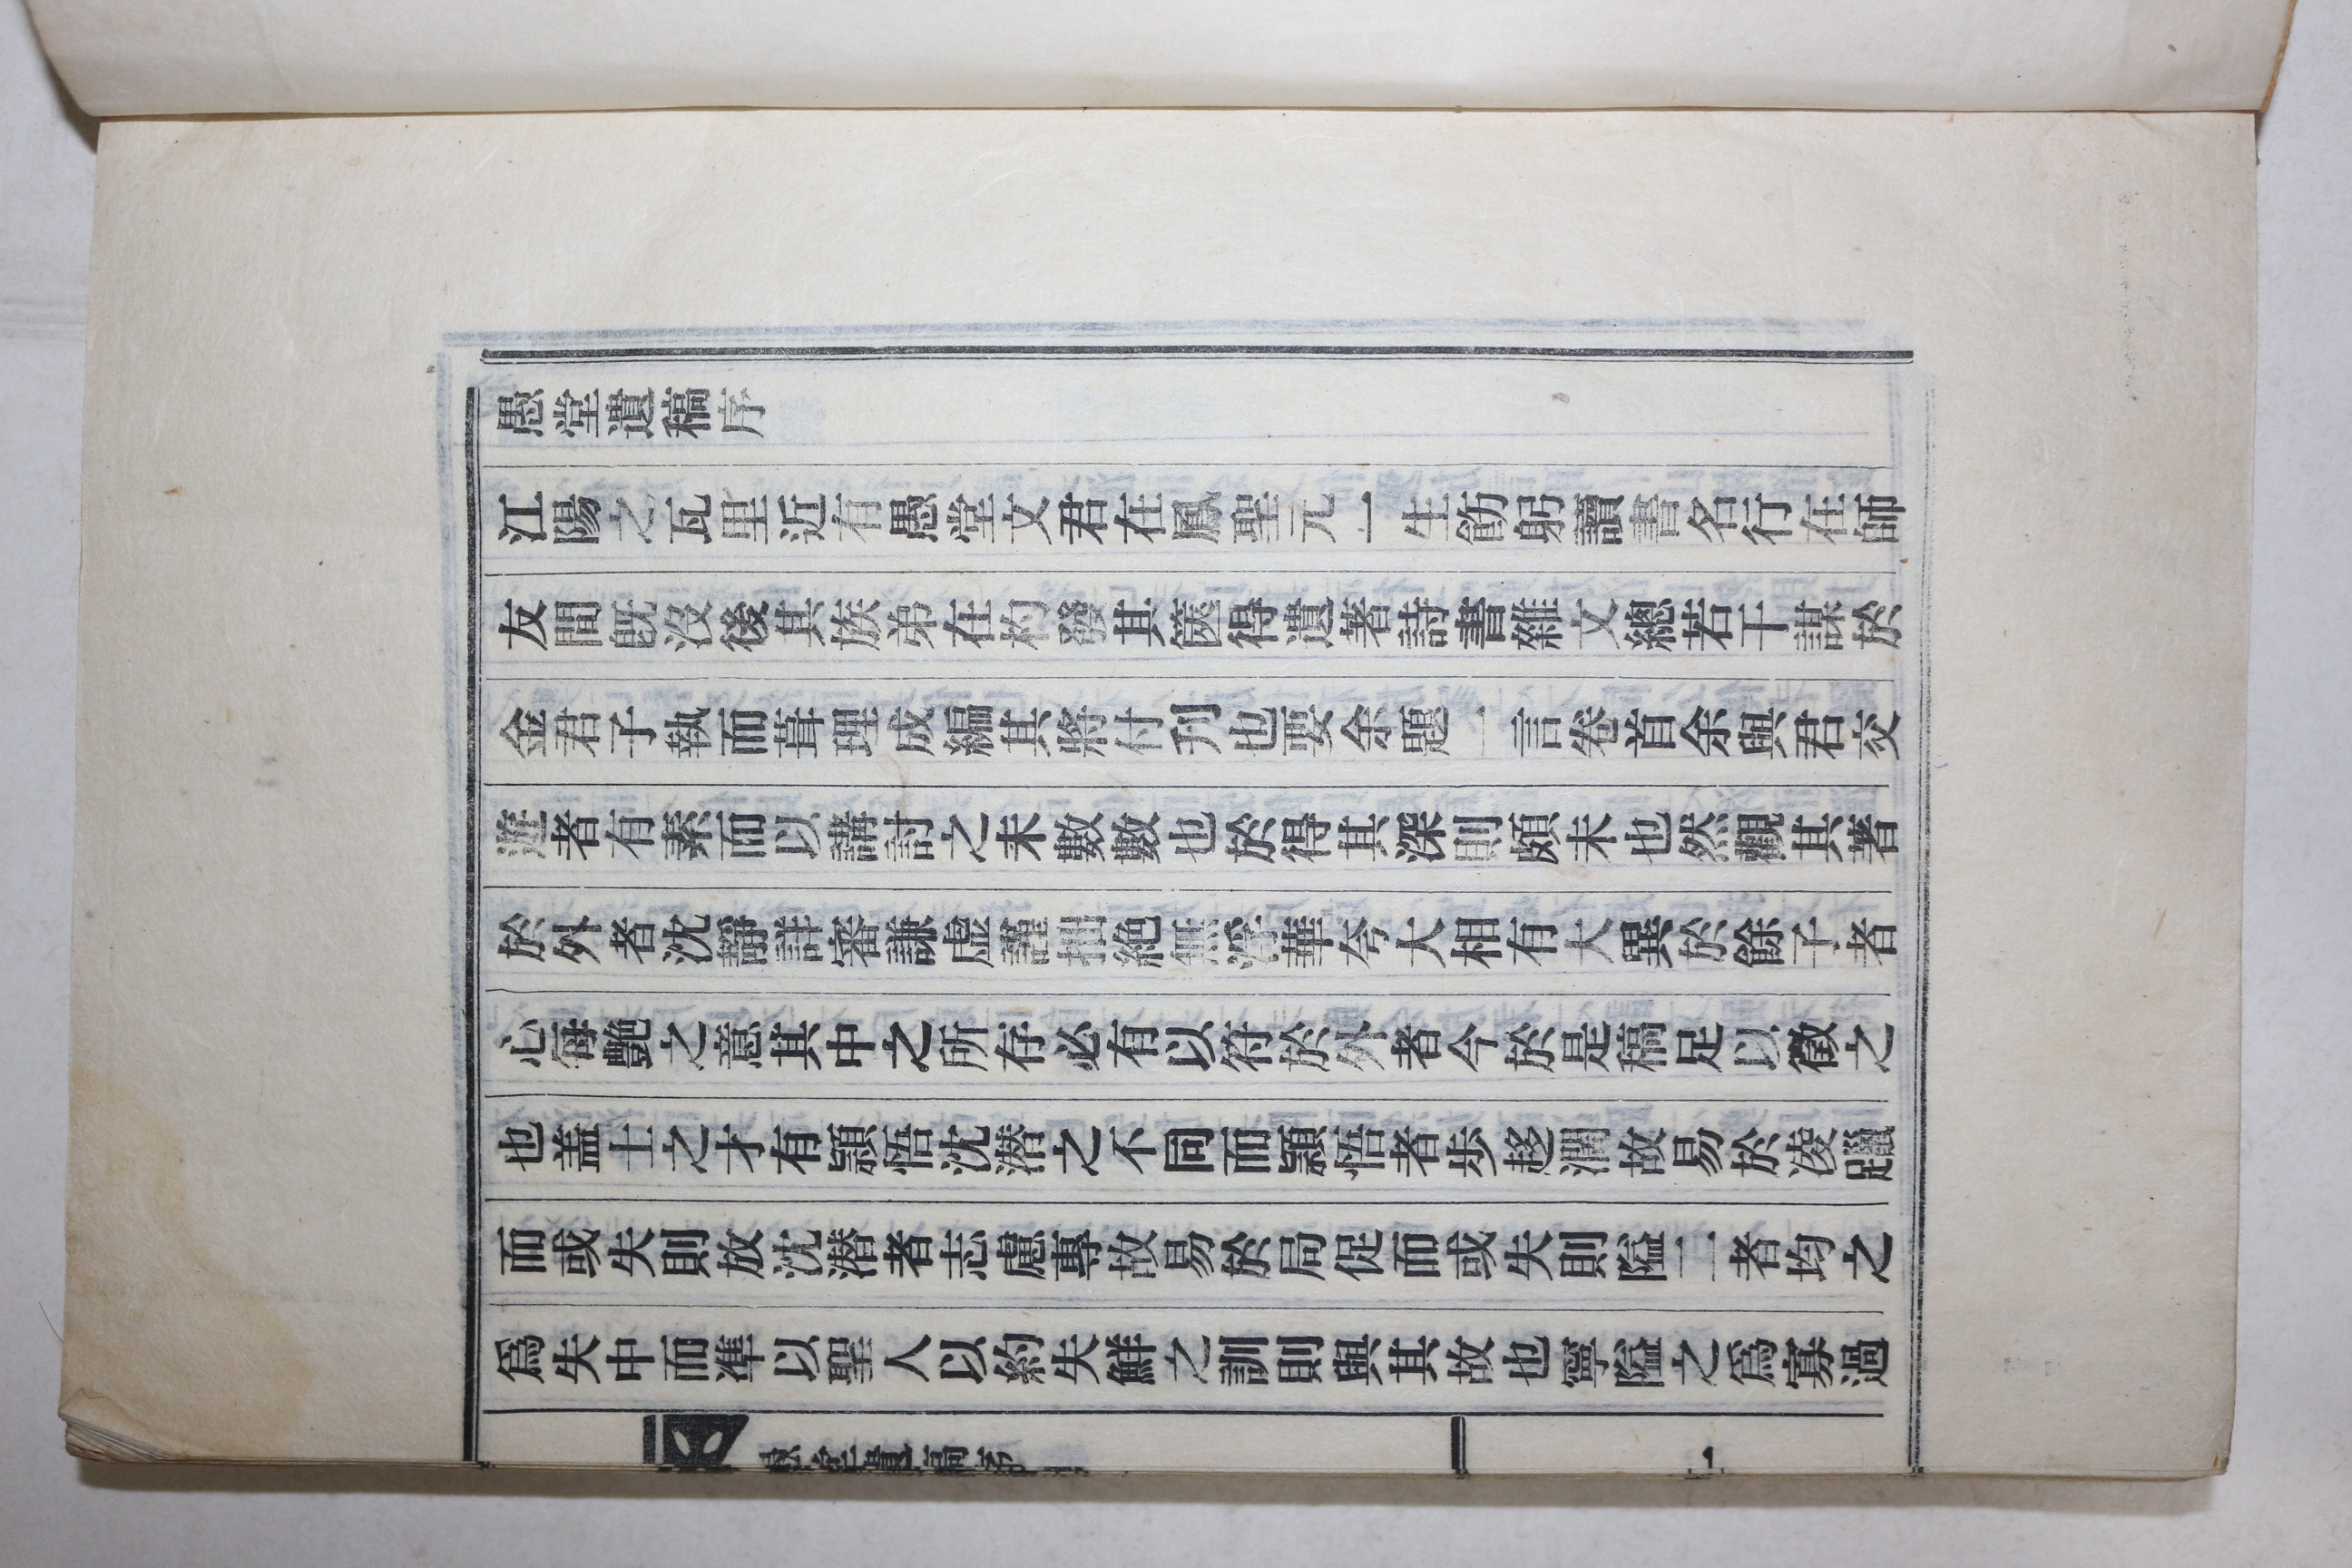 愚堂遺稿序
江陽之瓦里近有愚堂文君在鳳聖元一生飭躬讀書名行在師
友間旣沒後其族弟在杓發其篋得遺著詩書雜文總若干謀於
金君子執而葺理成編其將付刋也要余題一言卷首余與君交
遊者有素而以講討之未數數也於得其深則頗未也然觀其著
於外者沈靜詳審謙虛謹拙絶無浮華夸大相有大異於餘子者
心每艶之意其中之所存必有以符於外者今於是稿足以徵之
也盖士之才有顈悟沈潜之不同而顈悟者步趍濶故易於凌躐
而或失則放沈潜者志慮專故易於局促而或失則隘二者均之
爲失中而準以聖人以約失鮮之訓則與其放也寧隘之爲寡過
愚堂遺稿序